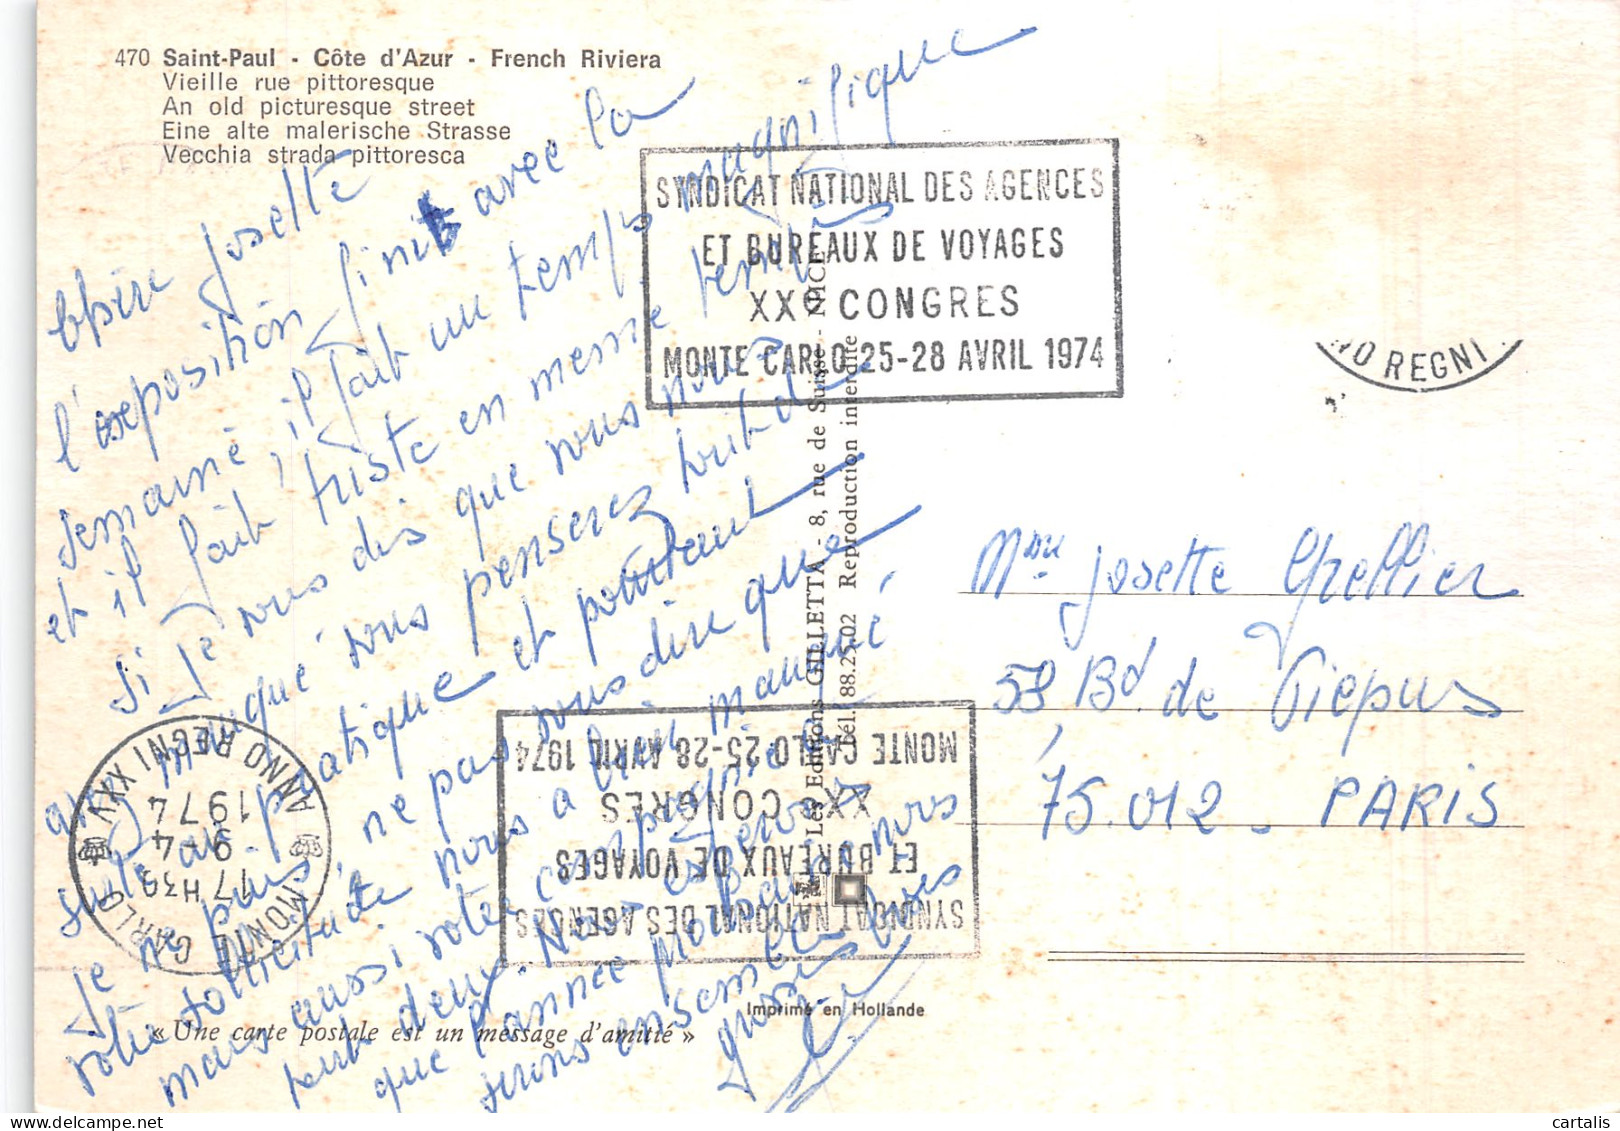 470 Saint-Paul - Côte d'Azur - French Riviera
Vieille rue pittoresque
An old picturesque street
Eine alte malerische Strasse
Vecchia strada pittoresca
Chère Josette
l'exposition finit avec la
semaine, il fait un temps magnifique
et il fait triste en même temps
si je vous dis que vous nous
avez manqué vous penserez tout de
suite au pratique et pourtant
je ne puis ne pas vous dire que
votre sollicitude nous a bien manqué
mais aussi votre compagnie à
tout deux. Nous espérons
que l'année prochaine nous
serons ensemble
Gros Bises
SYNDICAT NATIONAL DES AGENCES
ET BUREAUX DE VOYAGES
XXe CONGRES
MONTE CARLO 25-28 AVRIL 1974
NO REGNI
Les Editions GILLETTA - 8, rue de Suisse - NICE
Tél. 88.25.02 Reproduction interdite
Mme Josette Chellier
58 Bd de Picpus
75.012 - PARIS
SYNDICAT NATIONAL DES AGENCES
ET BUREAUX DE VOYAGES
XXe CONGRES
MONTE CARLO 25-28 AVRIL 1974
MONTE CARLO
ANNO REGNI XXV
17 H30
9-4
1974
Imprimé en Hollande
« Une carte postale est un message d'amitié »
cartalis
delcampe.net